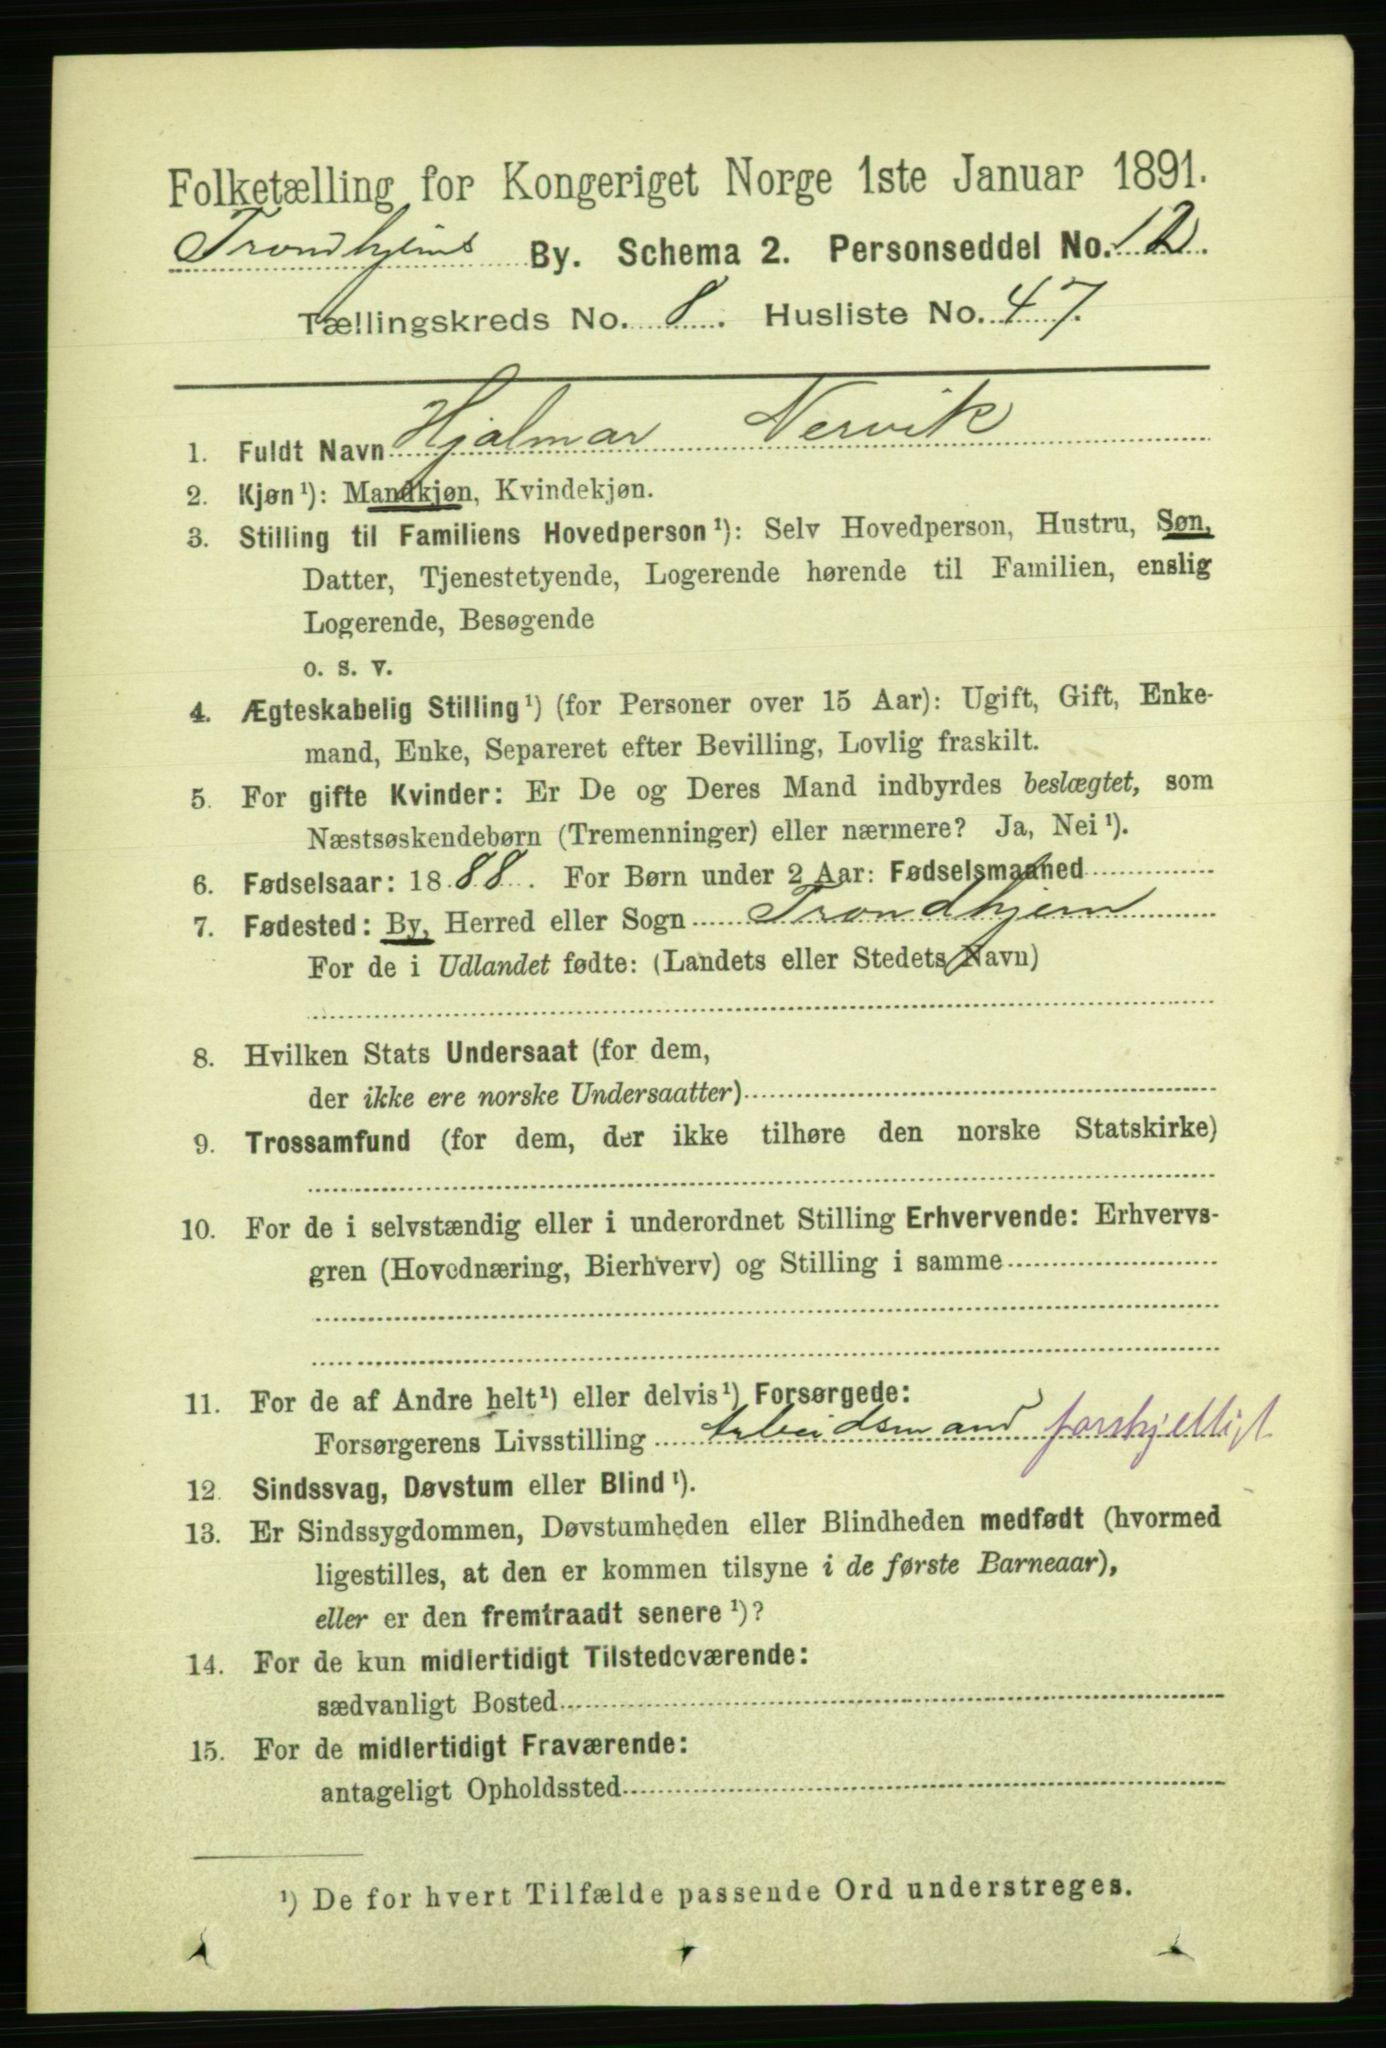 Folketælling for Kongeriget Norge 1ste Januar 1891.
Trondhjems By. Schema 2. Personseddel No. 12.
Tællingskreds No. 8. Husliste No. 47.
1. Fuldt Navn Hjalmar Nervik
2. Kjøn¹): Mandkjøn, Kvindekjøn.
3. Stilling til Familiens Hovedperson¹): Selv Hovedperson, Hustru, Søn,
Datter, Tjenestetyende, Logerende hørende til Familien, enslig
Logerende, Besøgende
o. s. v.
4. Ægteskabelig Stilling¹) (for Personer over 15 Aar): Ugift, Gift, Enke-
mand, Enke, Separeret efter Bevilling, Lovlig fraskilt.
5. For gifte Kvinder: Er De og Deres Mand indbyrdes beslægtet, som
Næstsøskendebørn (Tremenninger) eller nærmere? Ja, Nei¹).
6. Fødselsaar: 1888. For Børn under 2 Aar: Fødselsmaaned
7. Fødested: By, Herred eller Sogn Trondhjem
For de i Udlandet fødte: (Landets eller Stedets Navn)
8. Hvilken Stats Undersaat (for dem,
der ikke ere norske Undersaatter)
9. Trossamfund (for dem, der ikke tilhøre den norske Statskirke)
10. For de i selvstændig eller i underordnet Stilling Erhvervende: Erhvervs-
gren (Hovednæring, Bierhverv) og Stilling i samme
11. For de af Andre helt¹) eller delvis¹) Forsørgede:
Forsørgerens Livsstilling Arbeidsmand forskjelligt
12. Sindssvag, Døvstum eller Blind¹).
13. Er Sindssygdommen, Døvstumheden eller Blindheden medfødt (hvormed
ligestilles, at den er kommen tilsyne i de første Barneaar),
eller er den fremtraadt senere¹)?
14. For de kun midlertidigt Tilstedeværende:
sædvanligt Bosted
15. For de midlertidigt Fraværende:
antageligt Opholdssted
¹) De for hvert Tilfælde passende Ord understreges.